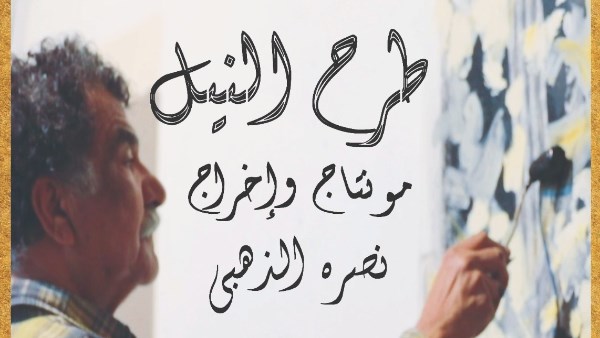 طرح النيل
مونتاج وإخراج
نصره الذهبى